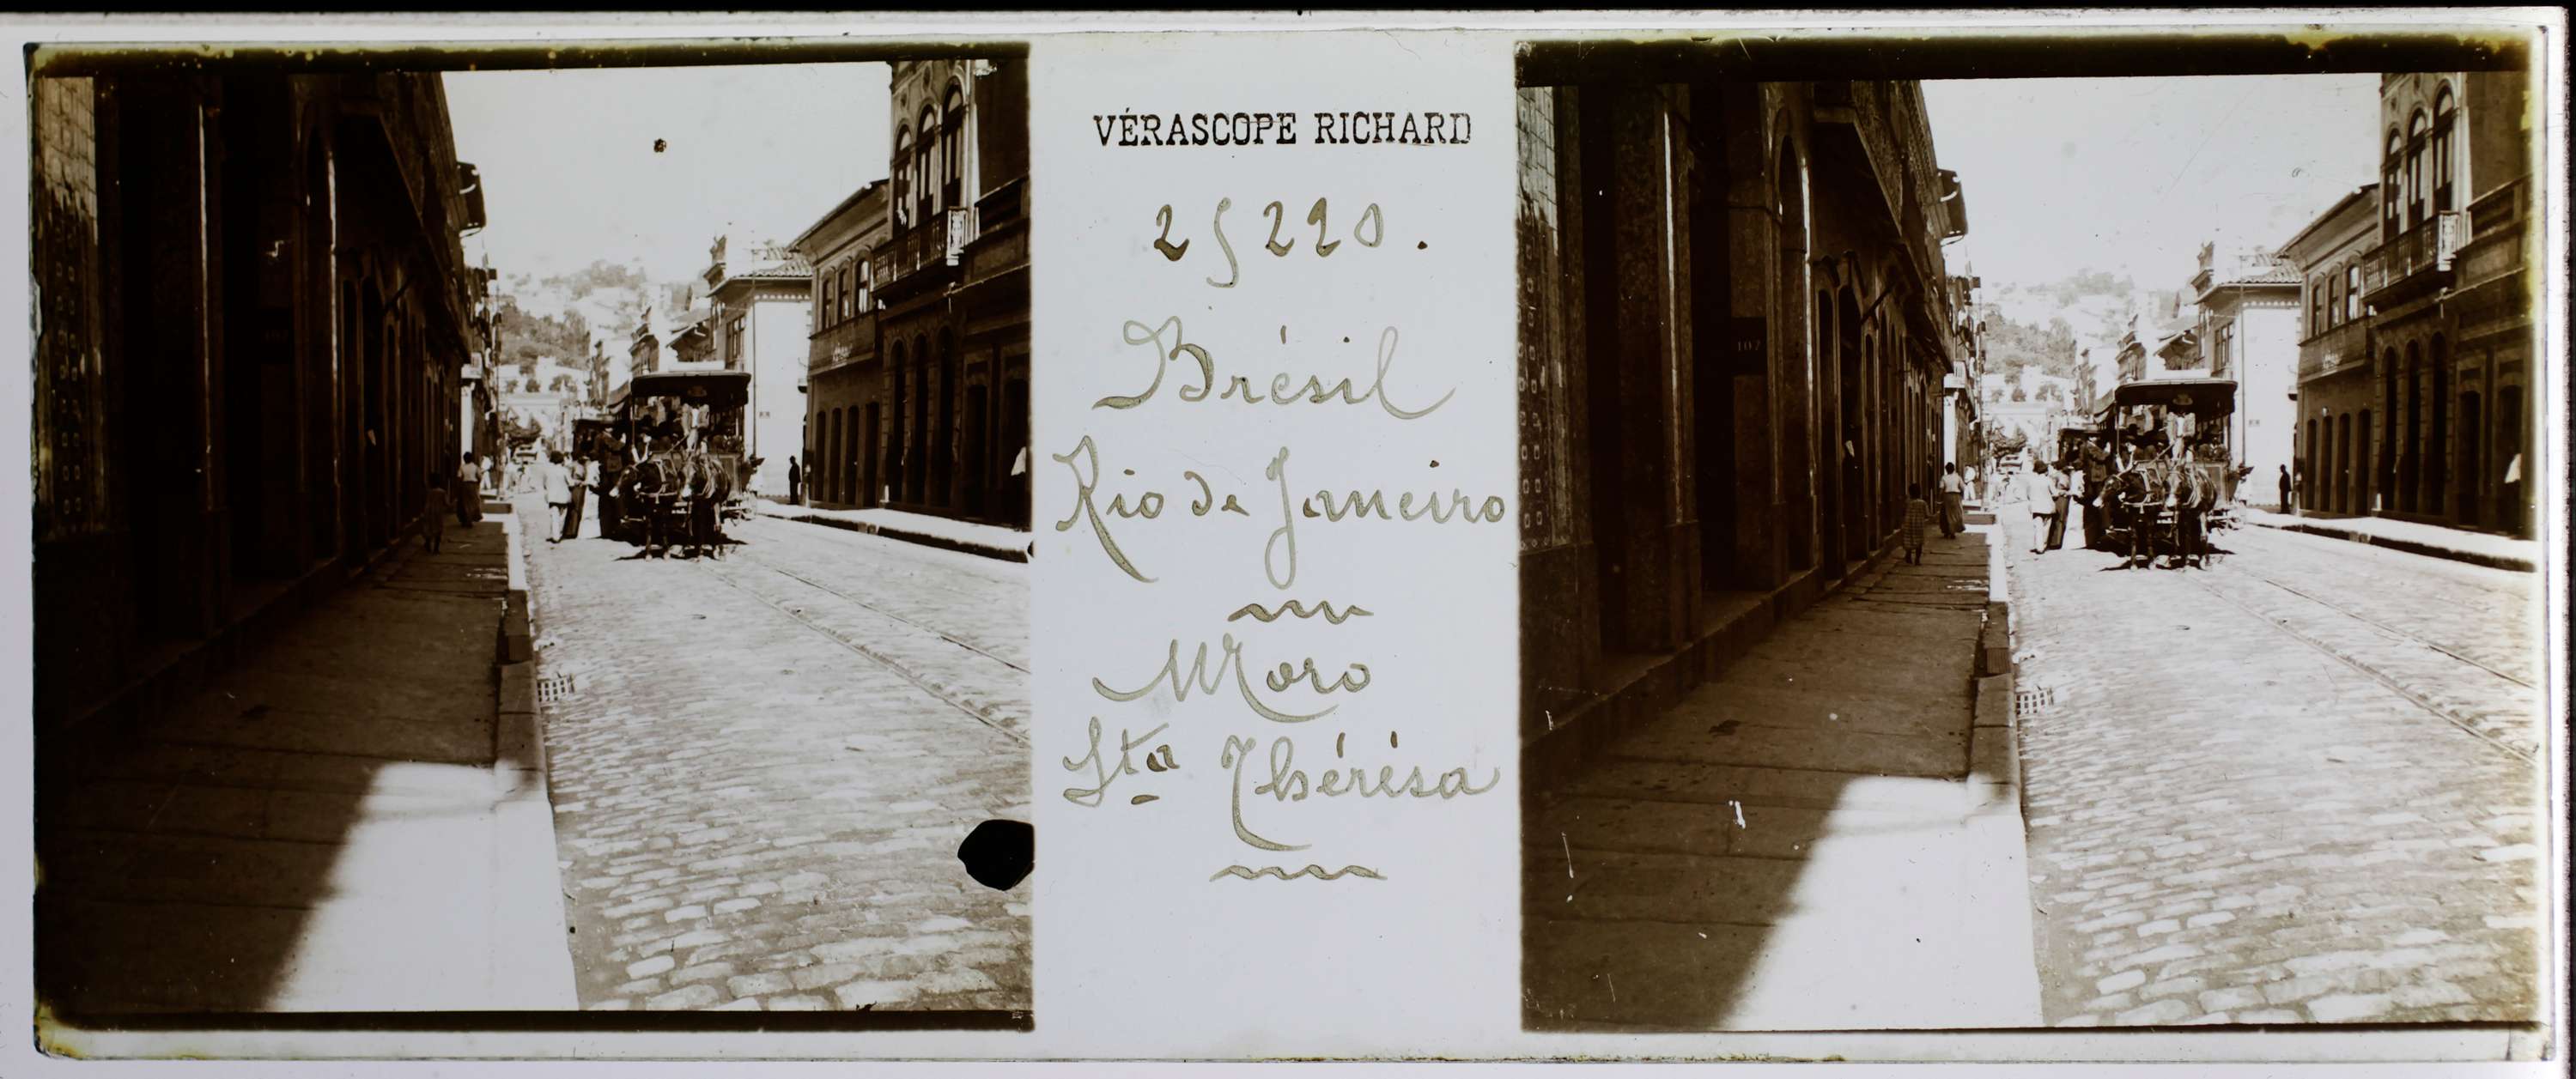 VÉRASCOPE RICHARD
25220.
Brésil
Rio de Janeiro
Moro
Sta Thérésa
107